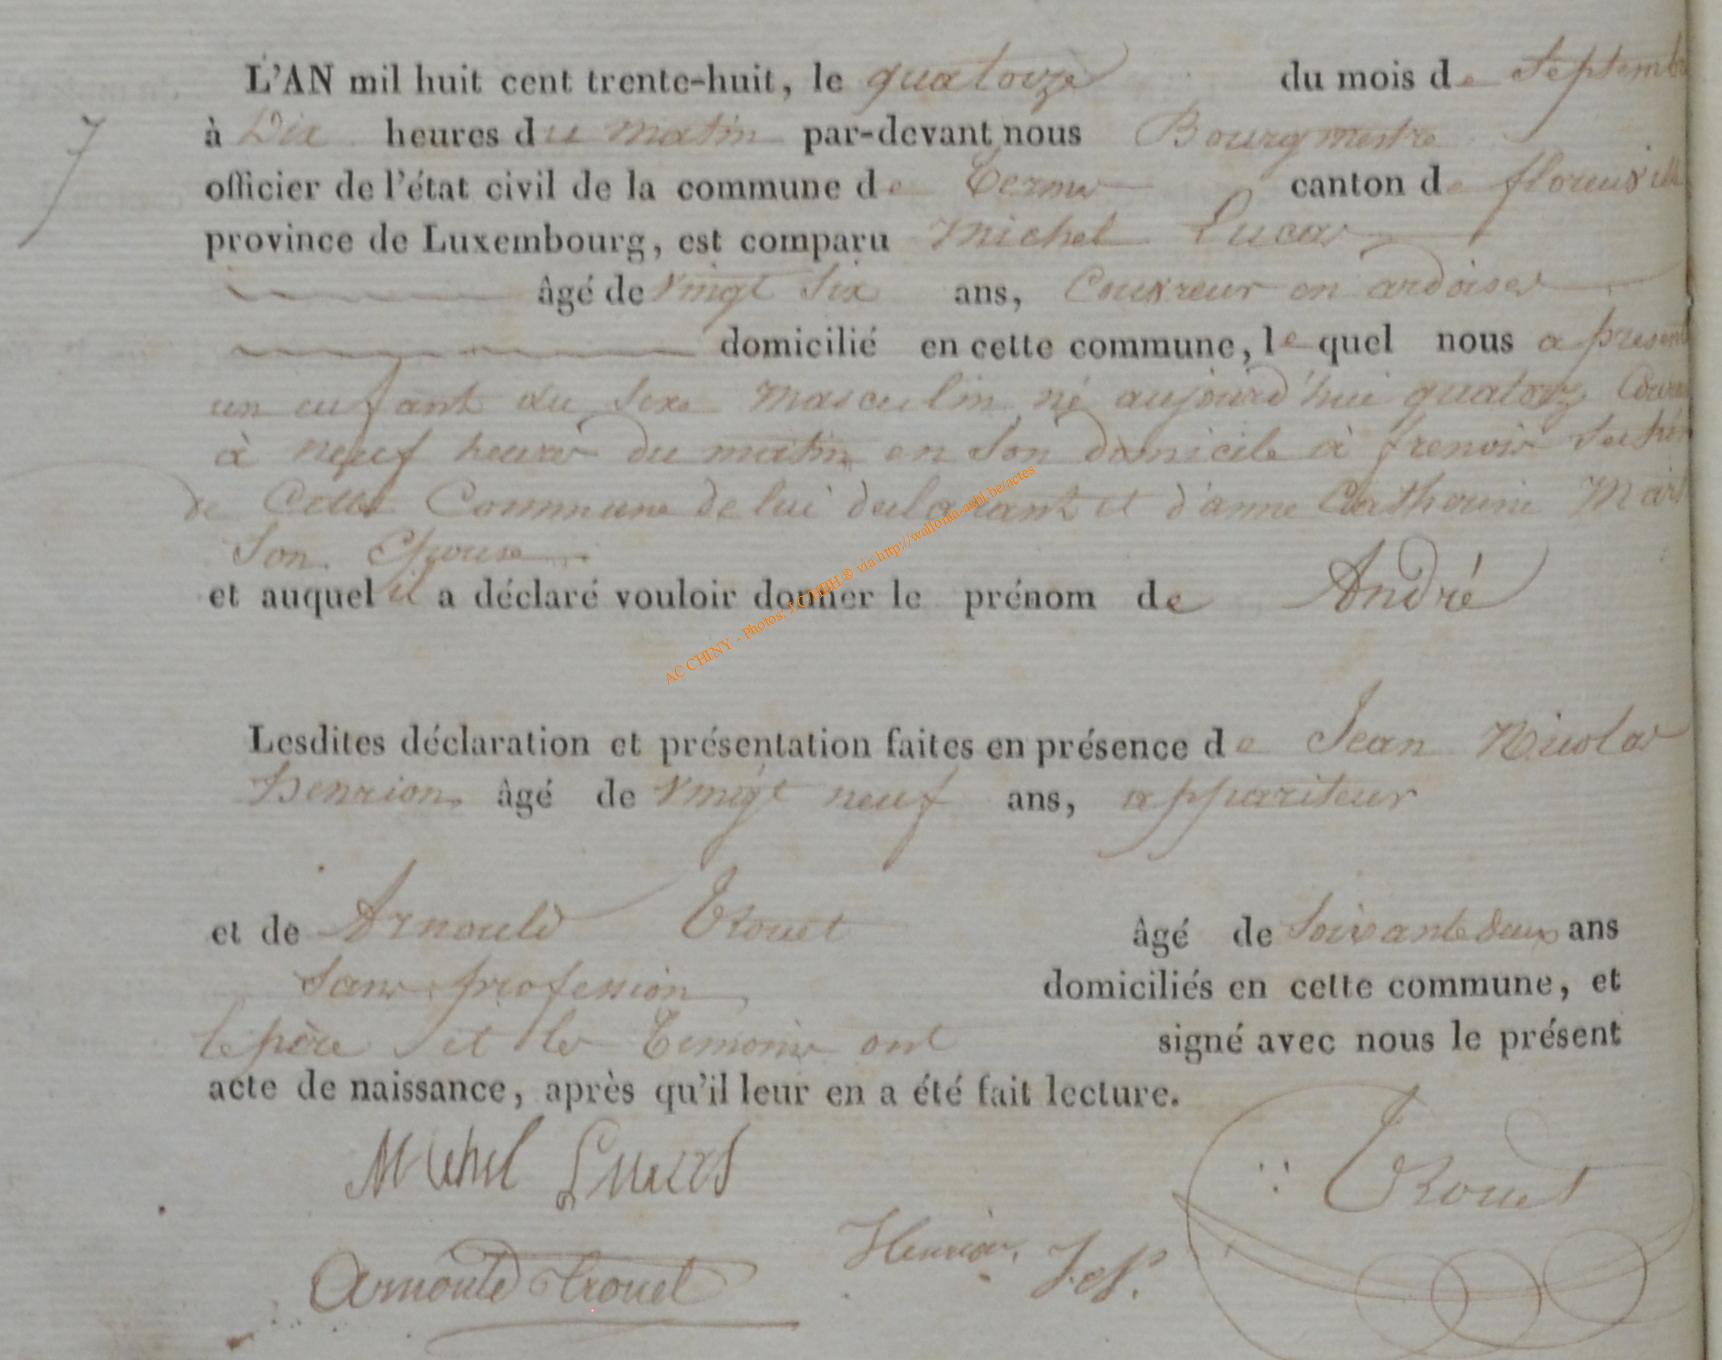 L'AN mil huit cent trente-huit, le quatorze du mois de Septembre
7
à Dix heures du matin par-devant nous Bourgmestre
officier de l'état civil de la commune de Termes canton de florenville
province de Luxembourg, est comparu Michel Lucas
âgé de vingt Six ans, Couvreur en ardoises
domicilié en cette commune, le quel nous a présenté
un enfant du Sexe Masculin né aujourd'hui quatorze
à neuf heures du matin en Son domicile à frenois Section
de Cette Commune de lui declarant et d'anne Catherine
Son Epouse
et auquel il a déclaré vouloir donner le prénom de André
AC CHINY - Photos: via http://wallonia-asbl.be/actes
Lesdites déclaration et présentation faites en présence de Jean Nicolas
Henrion âgé de vingt neuf ans, appariteur
et de Arnould Trouet âgé de Soixante deux ans
Sans profession domiciliés en cette commune, et
le père et les Temoins ont signé avec nous le présent
acte de naissance, après qu'il leur en a été fait lecture.
Michel Lucas
Trouet
Henrion
Arnould trouet